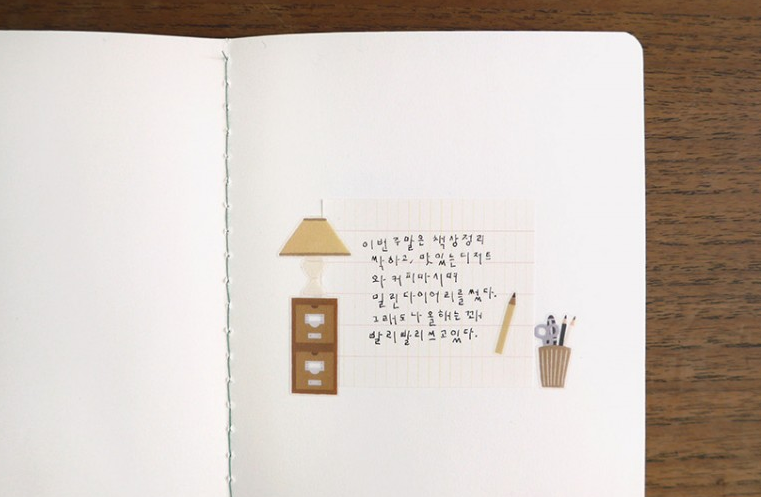 이번 주말은 책상정리
싹 하고, 맛있는 디저트
와 커피마시며
밀린 다이어리를 썼다.
그래도 나 올해는 꽤
빨리빨리 쓰고있다.